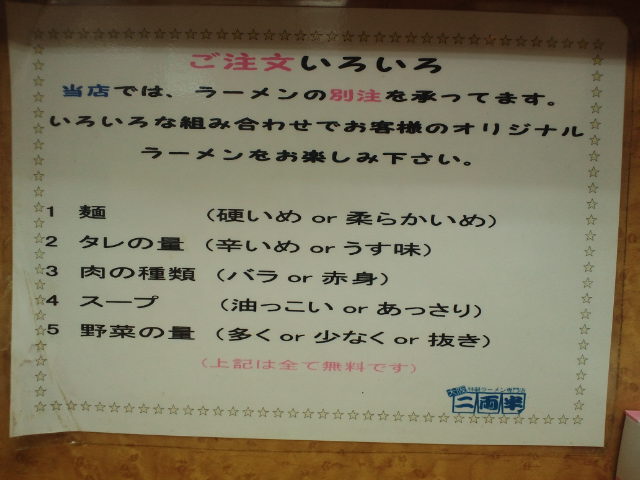 ご注文いろいろ
当店では、ラーメンの別注を承ってます。
いろいろな組み合わせでお客様のオリジナル
ラーメンをお楽しみ下さい。
1 麺 (硬いめ or 柔らかいめ)
2 タレの量 (辛いめ or うす味)
3 肉の種類 (バラ or 赤身)
4 スープ (油っこい or あっさり)
5 野菜の量 (多く or 少なく or 抜き)
(上記は全て無料です)
ラーメン専門店
二両半